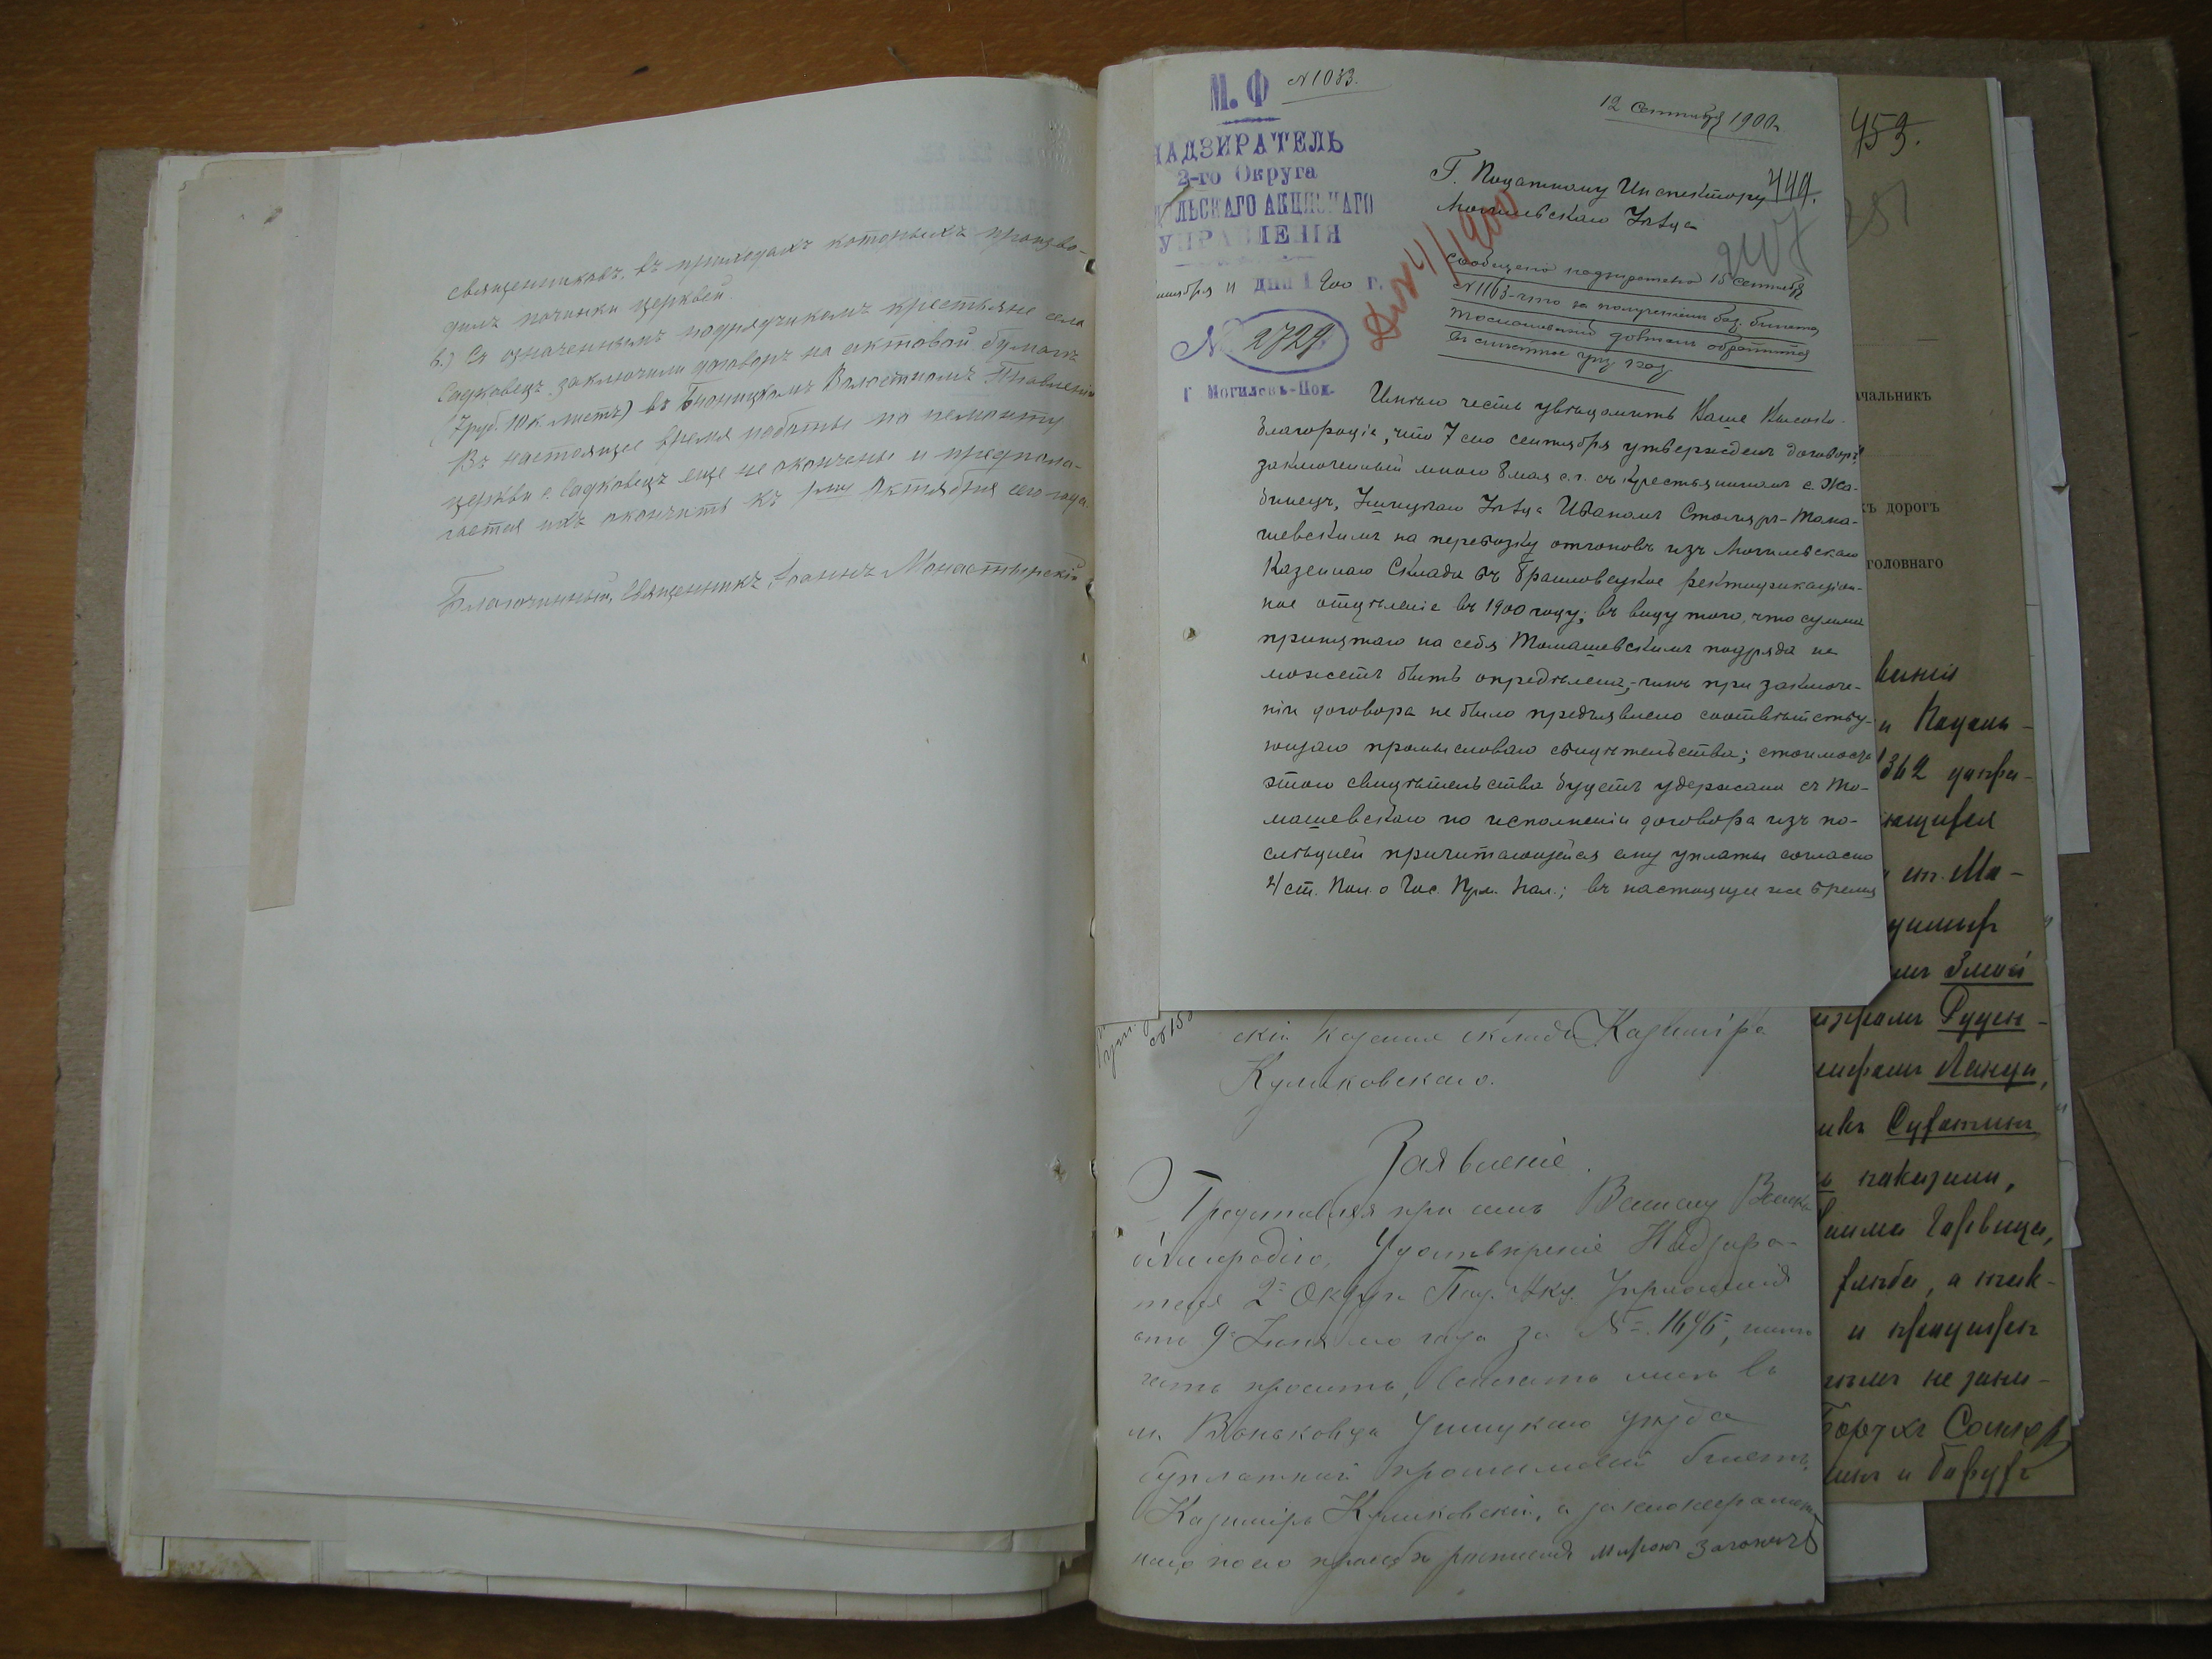 священниковъ, въ приходахъ которыхъ произво-
дилъ починки церквей.
6.) Съ означеннымъ подрядчикомъ крестьяне села
Садковецъ заключили договоръ на актовой бумагѣ
(7 руб. 10 к. листъ) въ Волостномъ Правленіи
Въ настоящее время работы по ремонту
церкви с. Садковецъ еще не окончены и предпола-
гается ихъ окончить къ 1му Октября сего года
Благочинный, Священникъ Іоаннъ Монастырскій
М. Ф
N 1083.
12 Сентября 1900 г.
НАДЗИРАТЕЛЬ
2-го Округа
ОЛЬСКАГО АКЦИЗНАГО
УПРАВЛЕНІЯ
11 дня 1900 г.
№ 2729
г Могилевъ-Под.
Г. Податному Инспектору
Могилевскаго Уѣзда
449.
Сообщено надзирателю 15 сентября
N 1163 что за полученіемъ без. билета
Томашевскій долженъ обратиться
Имѣю честь увѣдомить Ваше Высоко-
благородіе, что 7 сего сентября утвержденъ договоръ,
заключенный мною 8 мая с. г. съ крестьяниномъ с. Жа-
бинецъ, Ушицкаго Уѣзда Иваномъ Столяръ-Тома-
шевскимъ на перевозку отгоновъ изъ Могилевскаго
Казеннаго Склада въ Браиловецкое ректификаціон-
ное отдѣленіе въ 1900 году; въ виду того, что сумма
принятаго на себя Томашевскимъ подряда не
можетъ быть опредѣлена, имъ при заключе-
ніи договора не было предъявлено соотвѣтству-
ющаго промысловаго свидѣтельства; стоимость
этого свидѣтельства будетъ удержана съ То-
машевскаго по исполненіи договора изъ по-
слѣдней причитающейся ему уплаты согласно
4 ст. Пол. о Гос. Пром. Нал.; въ настоящее же время
скій казенна склада Казиміра
Куликовскаго.
Заявленіе.
Представляя при семъ Вашему Высоко-
благородію, Удостовѣреніе Надзира-
теля 2го Округа Под. Акц. Управленія
отъ 9го Іюня сего года за № 1646, имѣю
честь просить, выслать мнѣ въ
м. Воньковцы Ушицкаго уѣзда
безплатный промысловый билетъ,
Казиміръ Куликовскій, а за неграмот-
наго по его просьбѣ росписался
453.
чальникъ
хъ дорогъ
головнаго
и Подоль-
362
ющихся
имъ Змой
наказны,
Гарвица,
а ник-
не зани-